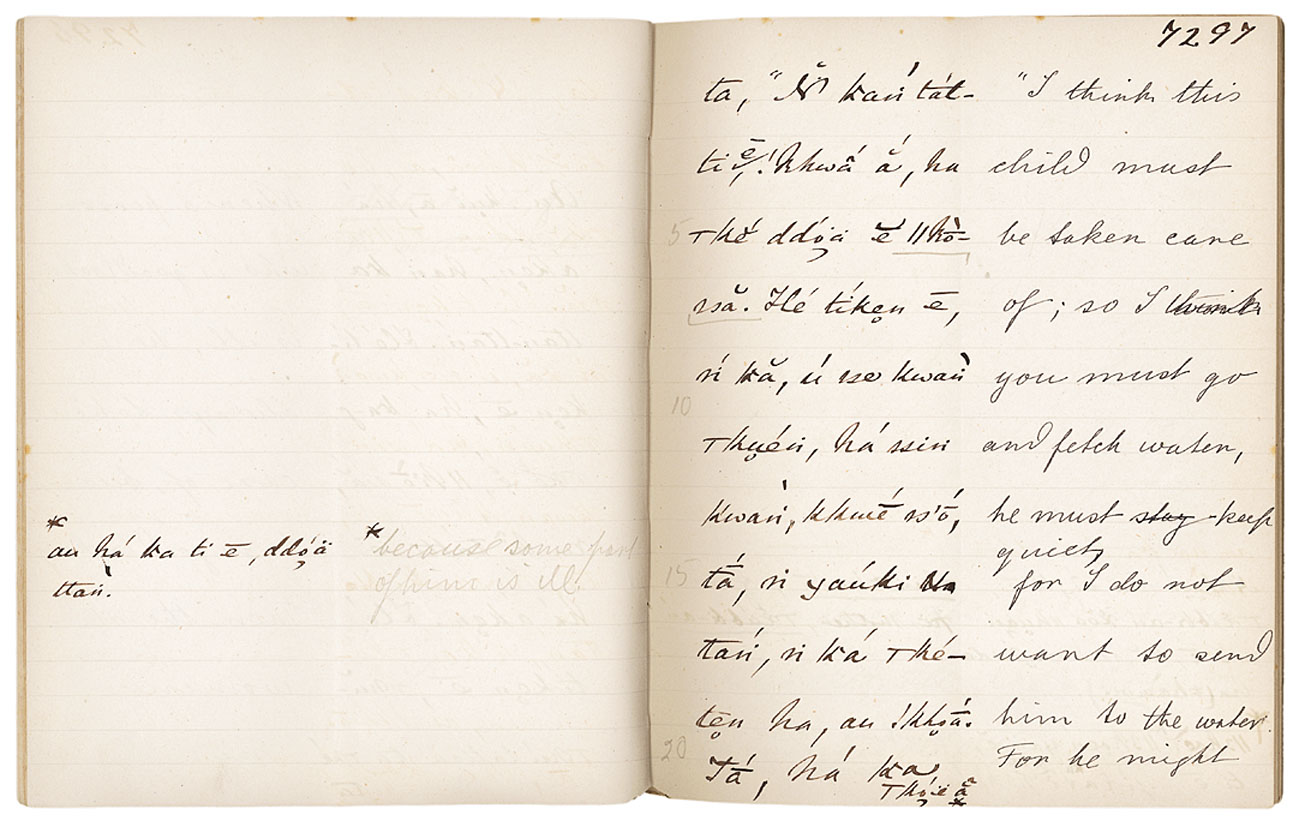 *
au há ka ti ē, ddóä
ttaṅ.
* because some part
of him is ill.
7297
ta, "Ň kaṅ tát- "I think this
ti ē, !khwā́ ắ, ha child must
5 Tkĕ́ ddóä ĕ́ ||kò- be taken care
ssă. Hé tíken ē, of; so I think
ṅ kă, ú sse kwaṅ̀ you must go
10
Tkuéṅ, há ssin and fetch water,
kwaṅ̀, kkwḗ ss'ṓ, he must stay keep
quiet,
15 tā́, ṅ yaúki for I do not
taṅ́, ṅ ká Tké- want to send
ten ha, au !khṓä. him to the water.
20 Tā́, há ka For he might
Tkóë ắ
*